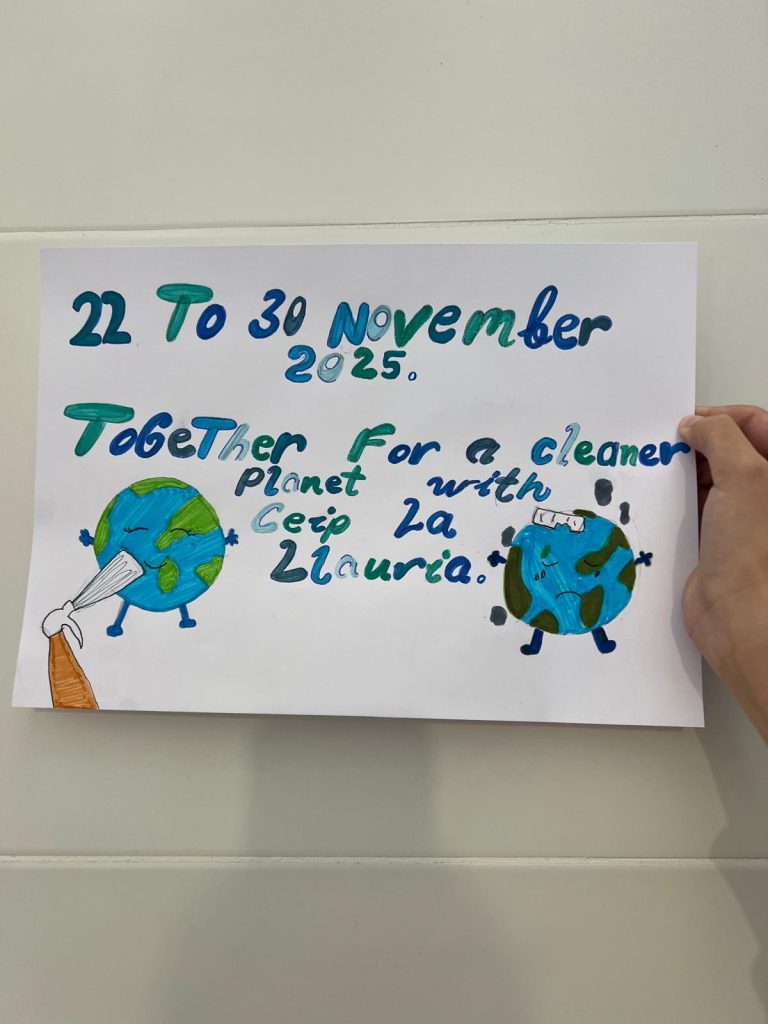 22 To 30 November
2025.
Together For a cleaner
Planet with
Ceip La
Llauria.